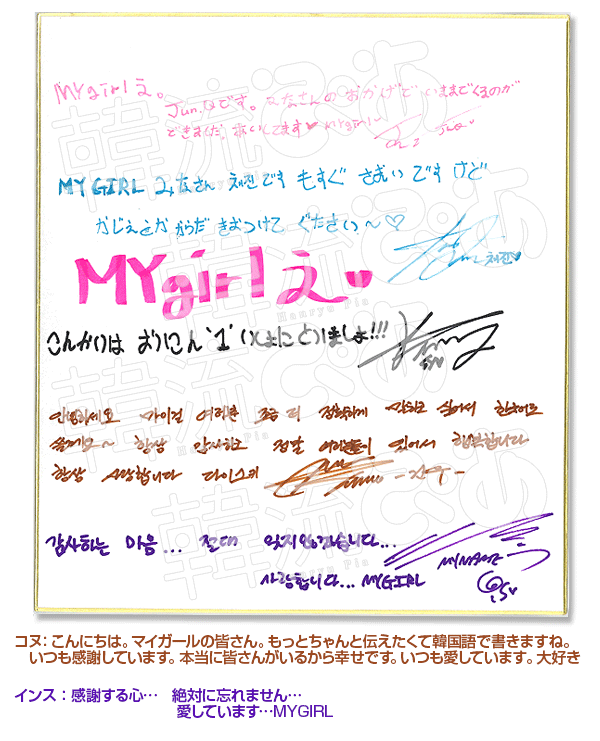 MYgirlえ。
Jun.Qです。みなさんのおかげでいままでくるのが
できました。あいしてます♥ MYgirl~
MYGIRL みなさん 채진です もすぐ さむいですけど
かじぇとか からだ きおつけて ぐたさい~♡
채진♡
MYgirlえ♥
こんかいは おりこん '1' いしょに とりましょ!!!
안녕하세요 마이걸 여러분 조금 더 정확하게 말하고 싶어서 한국어로
쓸게요~ 항상 감사하고 정말 여러분들이 있어서 행복합니다
항상 사랑합니다 다이스키
-건우-
감사하는 마음... 절대 잊지않겠습니다...
사랑합니다... MYGIRL
MYNAME
韓流ぴあ
Hanryu Pia
コヌ:こんにちは。マイガールの皆さん。もっとちゃんと伝えたくて韓国語で書きますね。
いつも感謝しています。本当に皆さんがいるから幸せです。いつも愛しています。大好き
インス:感謝する心… 絶対に忘れません…
愛しています…MYGIRL